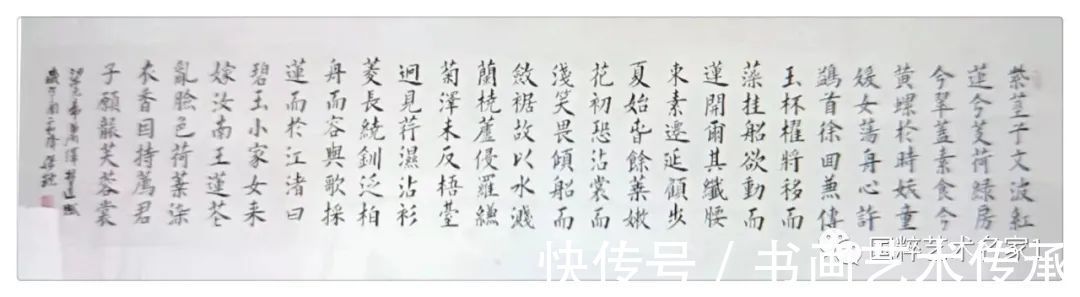 紫莖子文波紅
莲今芰荷綠房
今翠蓋素食今
黄螺於時妖童
媛女蕩舟心許
鷁首徐回兼傳
玉杯櫂將移而
藻挂船欲動而
蓮開爾其纖腰
束素遷延顧步
夏始春餘葉嫩
花初恐沾裳而
淺笑畏傾船而
斂裾故以水濺
蘭橈蘆侵羅縴
菊澤未反梧臺
迥見荇濕沾衫
菱長繞釧泛柏
舟而容與歌採
蓮而於江渚曰
碧玉小家女来
嫁汝南王蓮花
亂臉色荷葉染
衣香因持薦君
子願襲芙蓉裳
国粹艺术名家
快传号/书画艺术传承